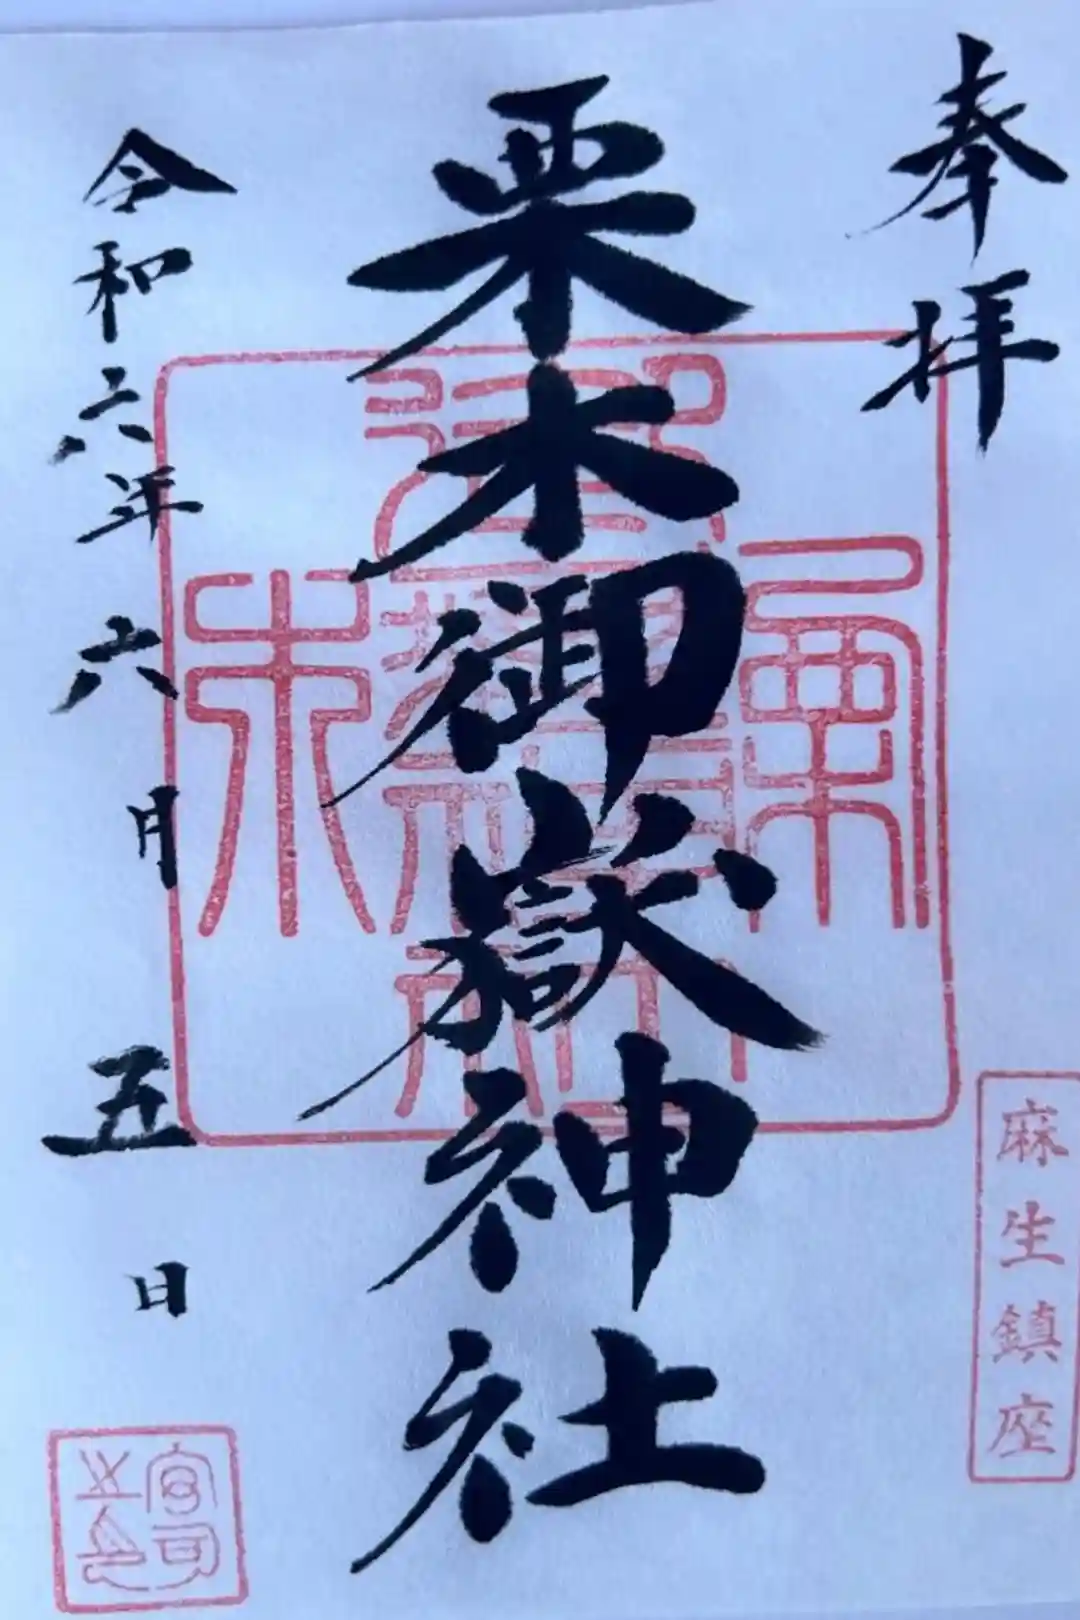 奉拝
栗木御嶽神社
令和六年六月五日
麻生鎮座
宮司之印